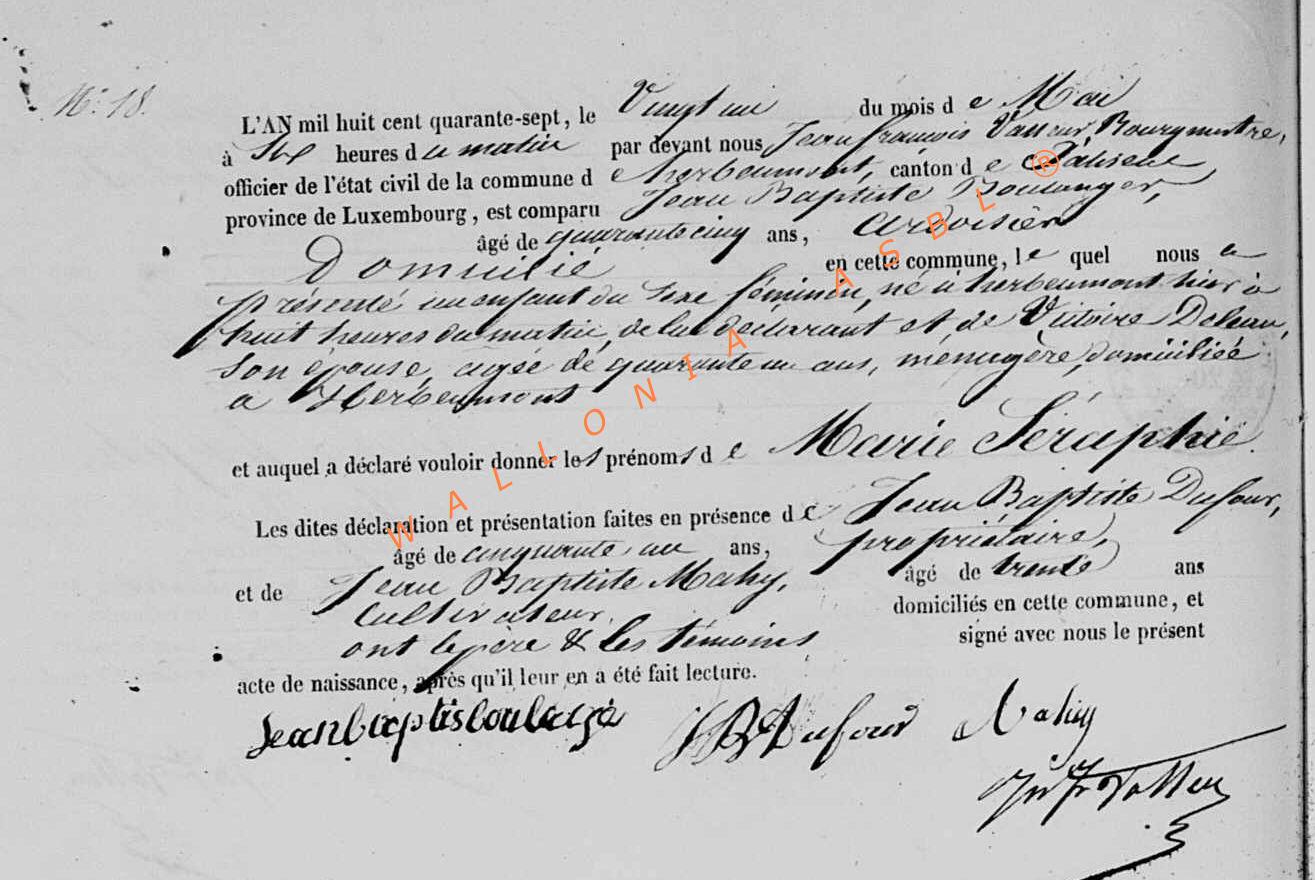 N° 18.
L'AN mil huit cent quarante-sept, le Vingt un du mois d e Mai
à Six heures d u matin par devant nous Jean françois Bourgmestre,
officier de l'état civil de la commune d e herbeumont, canton d e
province de Luxembourg, est comparu Jean Baptiste Boulanger,
âgé de quarante cinq ans, ardoisier
Domicilié en cette commune, l e quel nous a
présenté un enfant du Sexe féminin, né à herbeumont hier à
huit heures du matin, de lui déclarant et de Victoire
Son épouse, agée de quarante un ans, ménagère, domiciliée
a Herbeumont
et auquel a déclaré vouloir donner les prénoms d e Marie Séraphie.
Les dites déclaration et présentation faites en présence d e Jean Baptiste Dufour,
âgé de cinquante un ans, propriétaire,
et de Jean Baptiste Mahy, âgé de trente ans
Cultivateur. domiciliés en cette commune, et
ont le père & les témoins signé avec nous le présent
acte de naissance, après qu'il leur en a été fait lecture.
JB Dufour Mahy
WALLONIA ASBL ®